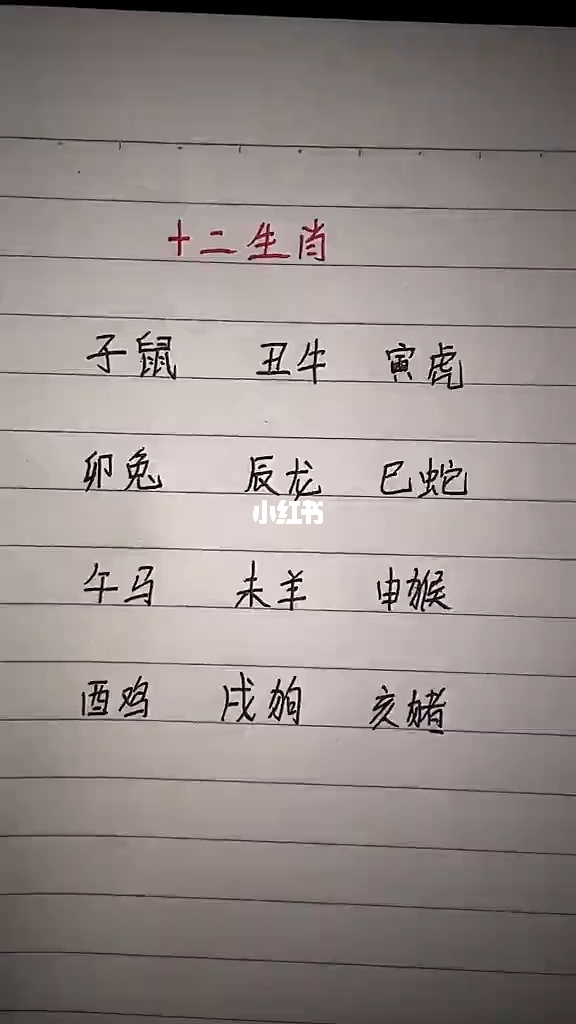 十二生肖
子鼠 丑牛 寅虎
卯兔 辰龙 巳蛇
小红书
午马 未羊 申猴
酉鸡 戌狗 亥猪